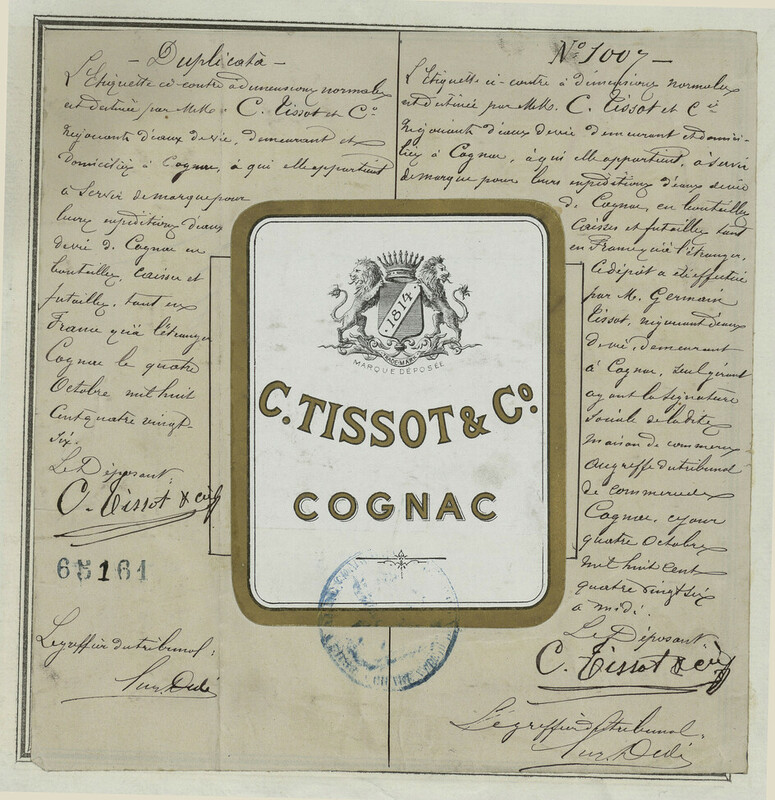 — Duplicata —
L'Etiquette ci-contre à dimensions normales
est destinée par M.M. C. Tissot et Cº
Négociants d'eaux de vie, demeurant et
domiciliés à Cognac, à qui elle appartient
à servir de marque pour
leurs expéditions d'eaux
de vie de Cognac en
bouteilles, caisses et
futailles, tant en
France qu'à l'étranger
Cognac le quatre
Octobre mil huit
Cent quatre vingt-
six.
Le Déposant:
C. Tissot & cie
65161
Le greffier du tribunal:
Nº 1007 -
L'Etiquette ci-contre à dimensions normales
est destinée par M.M. C. Tissot et Cie
Négociants d'eaux de vie demeurant et domici-
liés à Cognac, à qui elle appartient, à servir
de marque pour leurs expéditions d'eaux de vie
de Cognac, en bouteilles
caisses et futailles tant
en France qu'à l'étranger.
Ce dépôt a été effectué
par M. Germain
Tissot, négociant d'eaux
de vie, demeurant
à Cognac, seul gérant
ayant la signature
sociale de la dite
maison de commerce
au greffe du tribunal
de commerce de
Cognac, ce jour
quatre Octobre
mil huit cent
quatre vingt six
à midi.
Le Déposant
C. Tissot & cie
Le greffier du tribunal.
1814
TRADE-MARK
MARQUE DÉPOSÉE
C. TISSOT & Cº.
COGNAC